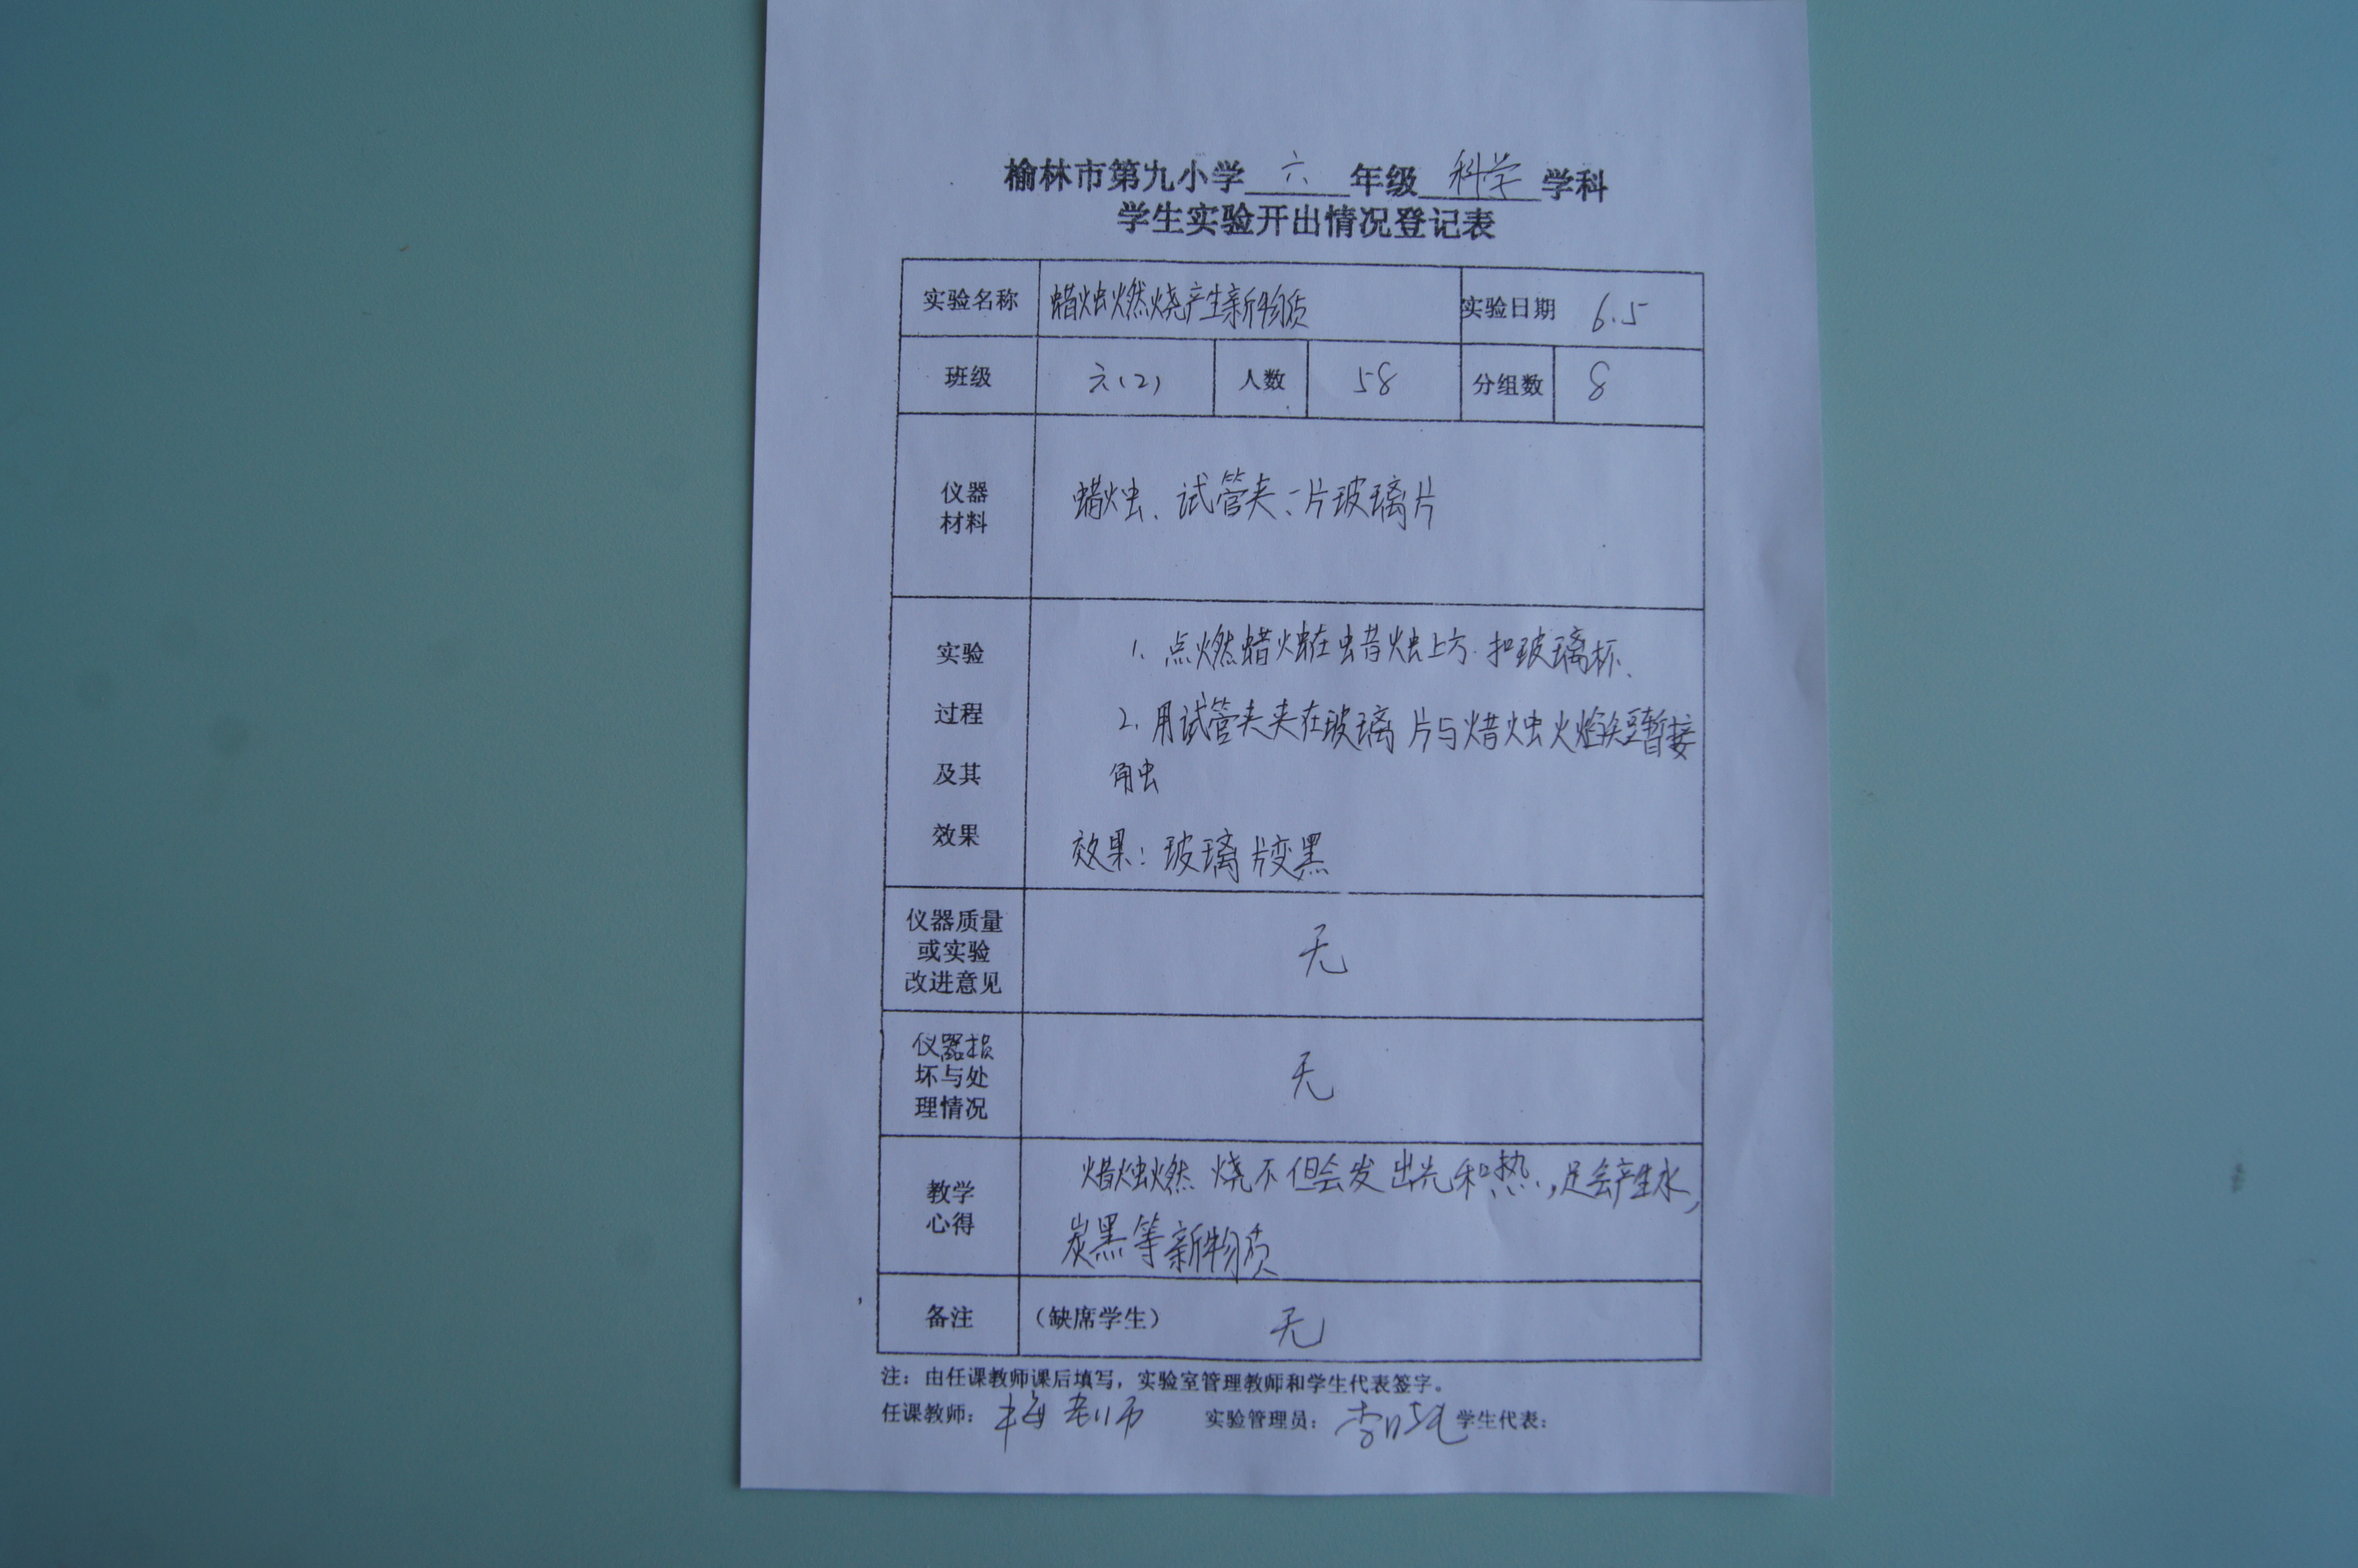 榆林市第九小学 六 年级 科学 学科
学生实验开出情况登记表
实验名称 蜡烛燃烧产生新物质 实验日期 6.5
班级 六(2) 人数 58 分组数 8
仪器
材料
蜡烛、试管夹、一片玻璃片
实验
过程
及其
效果
1. 点燃蜡烛在蜡烛上方扣玻璃杯、
2. 用试管夹夹在玻璃片与蜡烛火焰短暂接
触
效果: 玻璃片变黑
仪器质量
或实验
改进意见
无
仪器损
坏与处
理情况
无
教学
心得
蜡烛燃烧不但会发出光和热,还会产生水,
炭黑等新物质
备注 (缺席学生) 无
注: 由任课教师课后填写, 实验室管理教师和学生代表签字。
任课教师: 实验管理员: 学生代表: